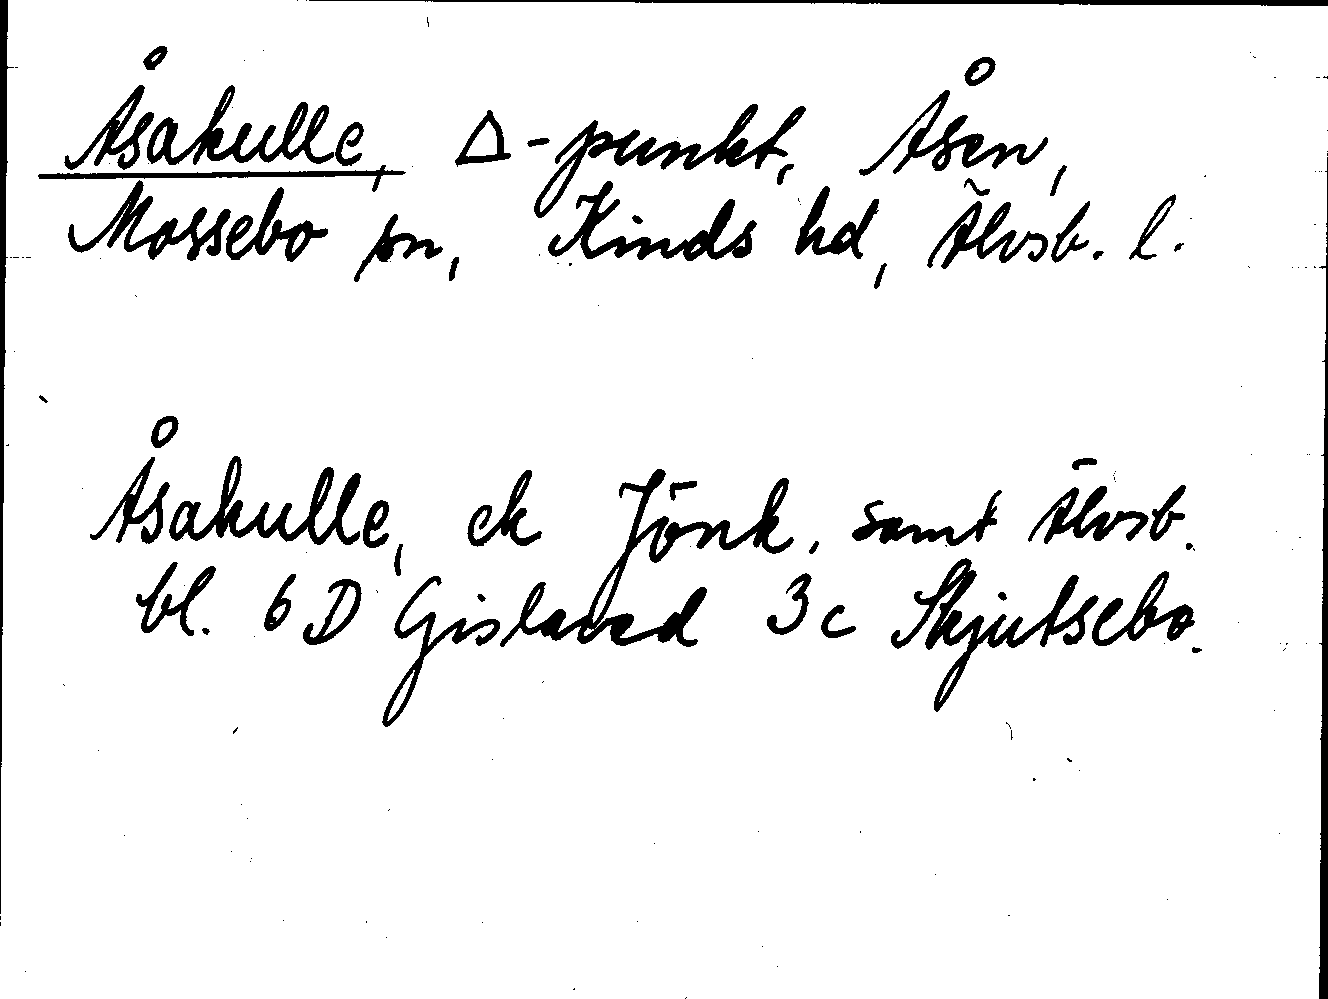 Åsakulle, Δ-punkt, Åsen,
Mossebo sn, Kinds hd, Älvsb. l.
Åsakulle, ek Jönk. samt Älvsb.
bl. 6D Gislaved 3c Skjutsebo.